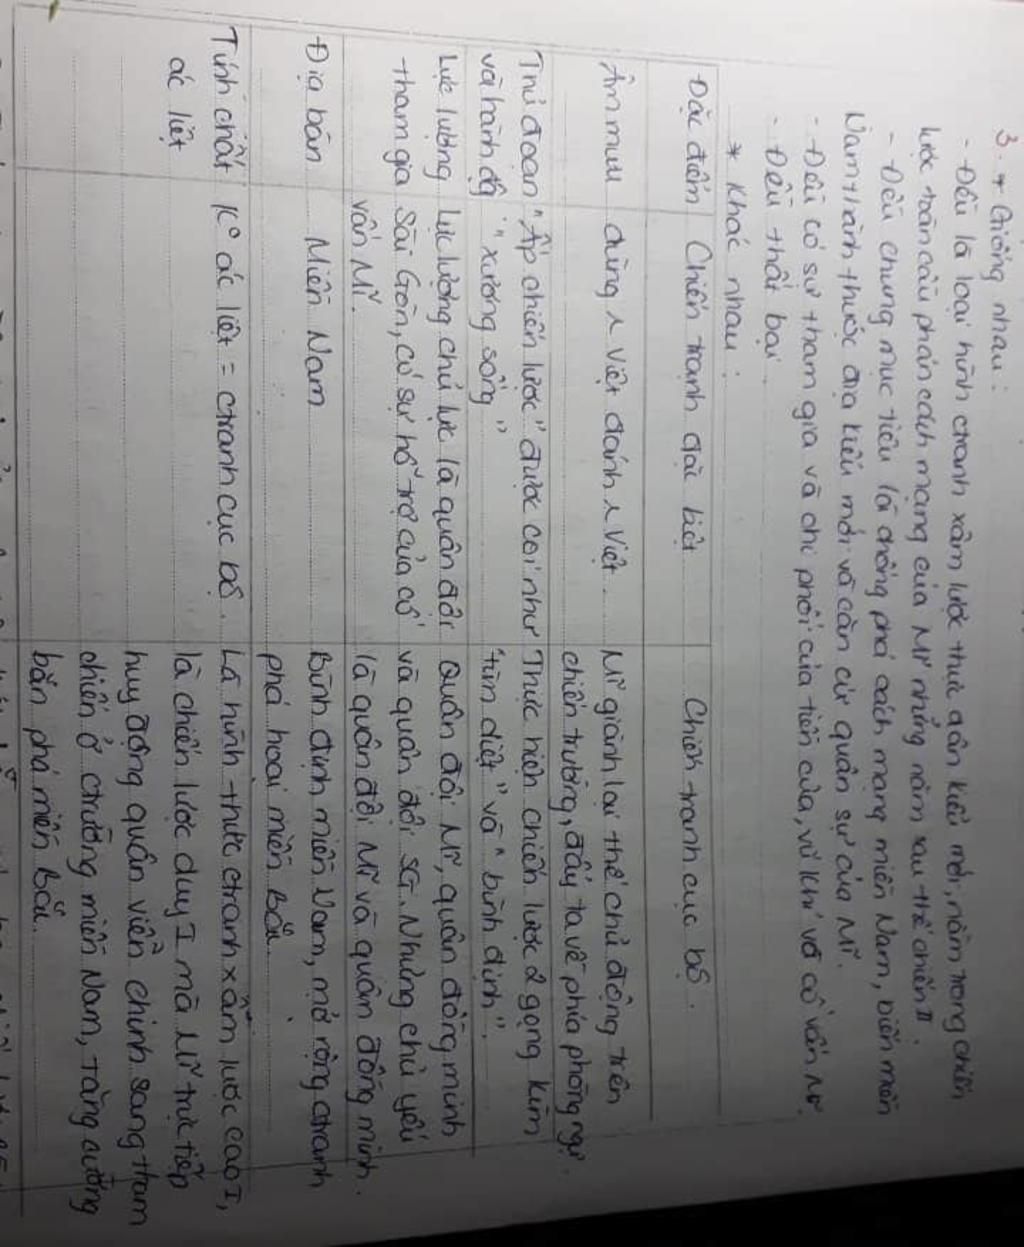 3. * Giống nhau:
- Đều là loại hình ctranh xâm lược thực dân kiểu mới, nằm trong chiến
lược toàn cầu phản cách mạng của Mĩ những năm sau thế chiến II.
- Đều chung mục tiêu là chống phá cách mạng miền Nam, biến miền
Nam thành thuộc địa kiểu mới và căn cứ quân sự của Mĩ.
- Đều có sự tham gia và chi phối của tiền của, vũ khí và cố vấn Mĩ
- Đều thất bại.
* Khác nhau:
Đặc điểm Chiến tranh đặc biệt Chiến tranh cục bộ.
Âm mưu dùng ng Việt đánh ng Việt. Mĩ giành lại thế chủ động trên
chiến trường, đẩy ta về phía phòng ngự.
Thủ đoạn "Ấp chiến lược" được coi như Thực hiện chiến lược 2 gọng kìm
và hành độg "xương sống" "tìm diệt" và "bình định".
Lực lượng Lực lượng chủ lực là quân đội Quân đội Mĩ, quân đồng minh
tham gia Sài Gòn, có sự hỗ trợ của cố và quân đội SG. Nhưng chủ yếu
vấn Mĩ. là quân đội Mĩ và quân đồng minh.
Địa bàn Miền Nam Bình định miền Nam, mở rộng ctranh
phá hoại miền Bắc.
Tính chất K° ác liệt = ctranh cục bộ. Là hình thức ctranh xâm lược cao I,
ác liệt là chiến lược duy I mà Mĩ trực tiếp
huy động quân viễn chinh sang tham
chiến ở ctrường miền Nam, tăng cường
bắn phá miền Bắc.